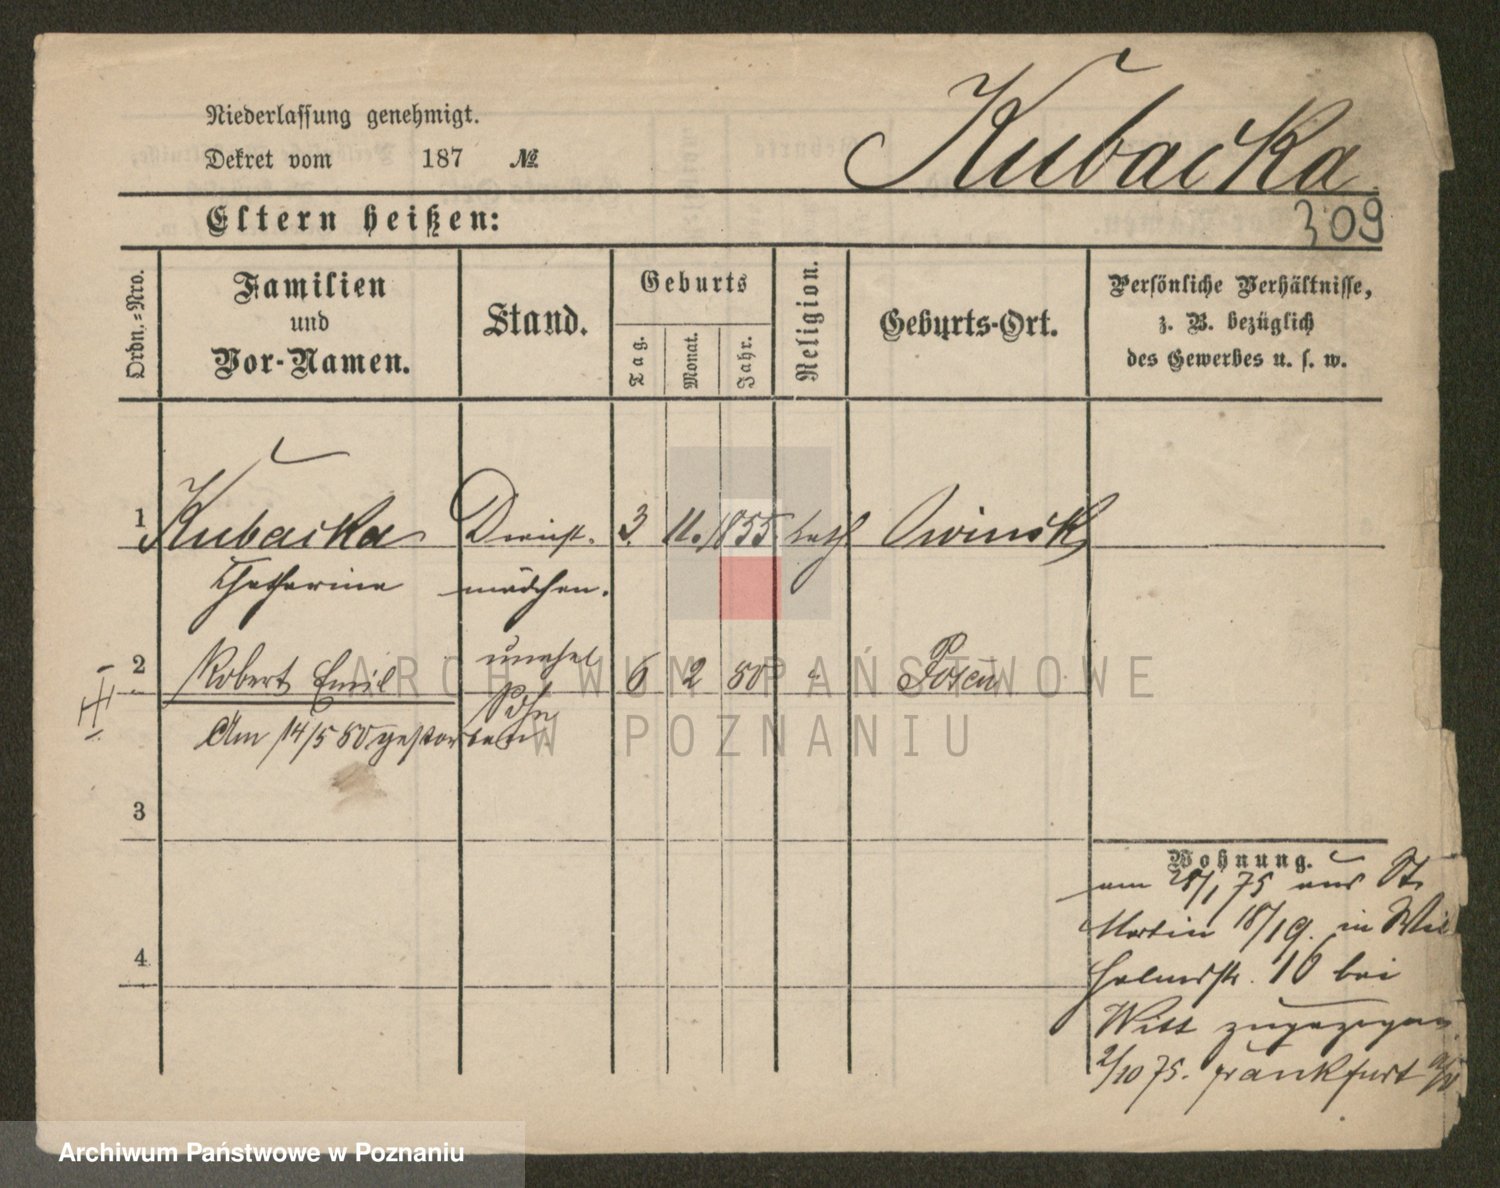 Kubacka
Niederlassung genehmigt.
Dekret vom 187 №
309
Eltern heißen:
Ordn.-Nro.
Familien
und
Vor-Namen.
Stand.
Geburts
Tag. Monat. Jahr.
Religion.
Geburts-Ort.
Persönliche Verhältnisse,
z. B. bezüglich
des Gewerbes u. s. w.
1 Kubacka Dienst- 3. 11. 1855 kath Owinsk
Catharina mädchen.
2 Robert Emil unehel 6 2 80 " Posen
Sohn
Am 14/5 80 gestorben
3
4
Wohnung.
am 28/1 75 aus St.
Martin 18/19. in Wil
helmsstr. 16 bei
Witt zugezogen
2/10 75. Frankfurt a/O
ARCHIWUM PAŃSTWOWE
W POZNANIU
Archiwum Państwowe w Poznaniu